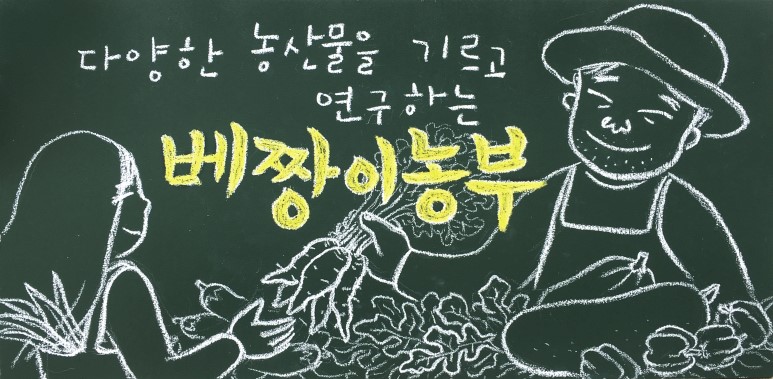 다양한 농산물을 기르고
연구하는
베짱이농부